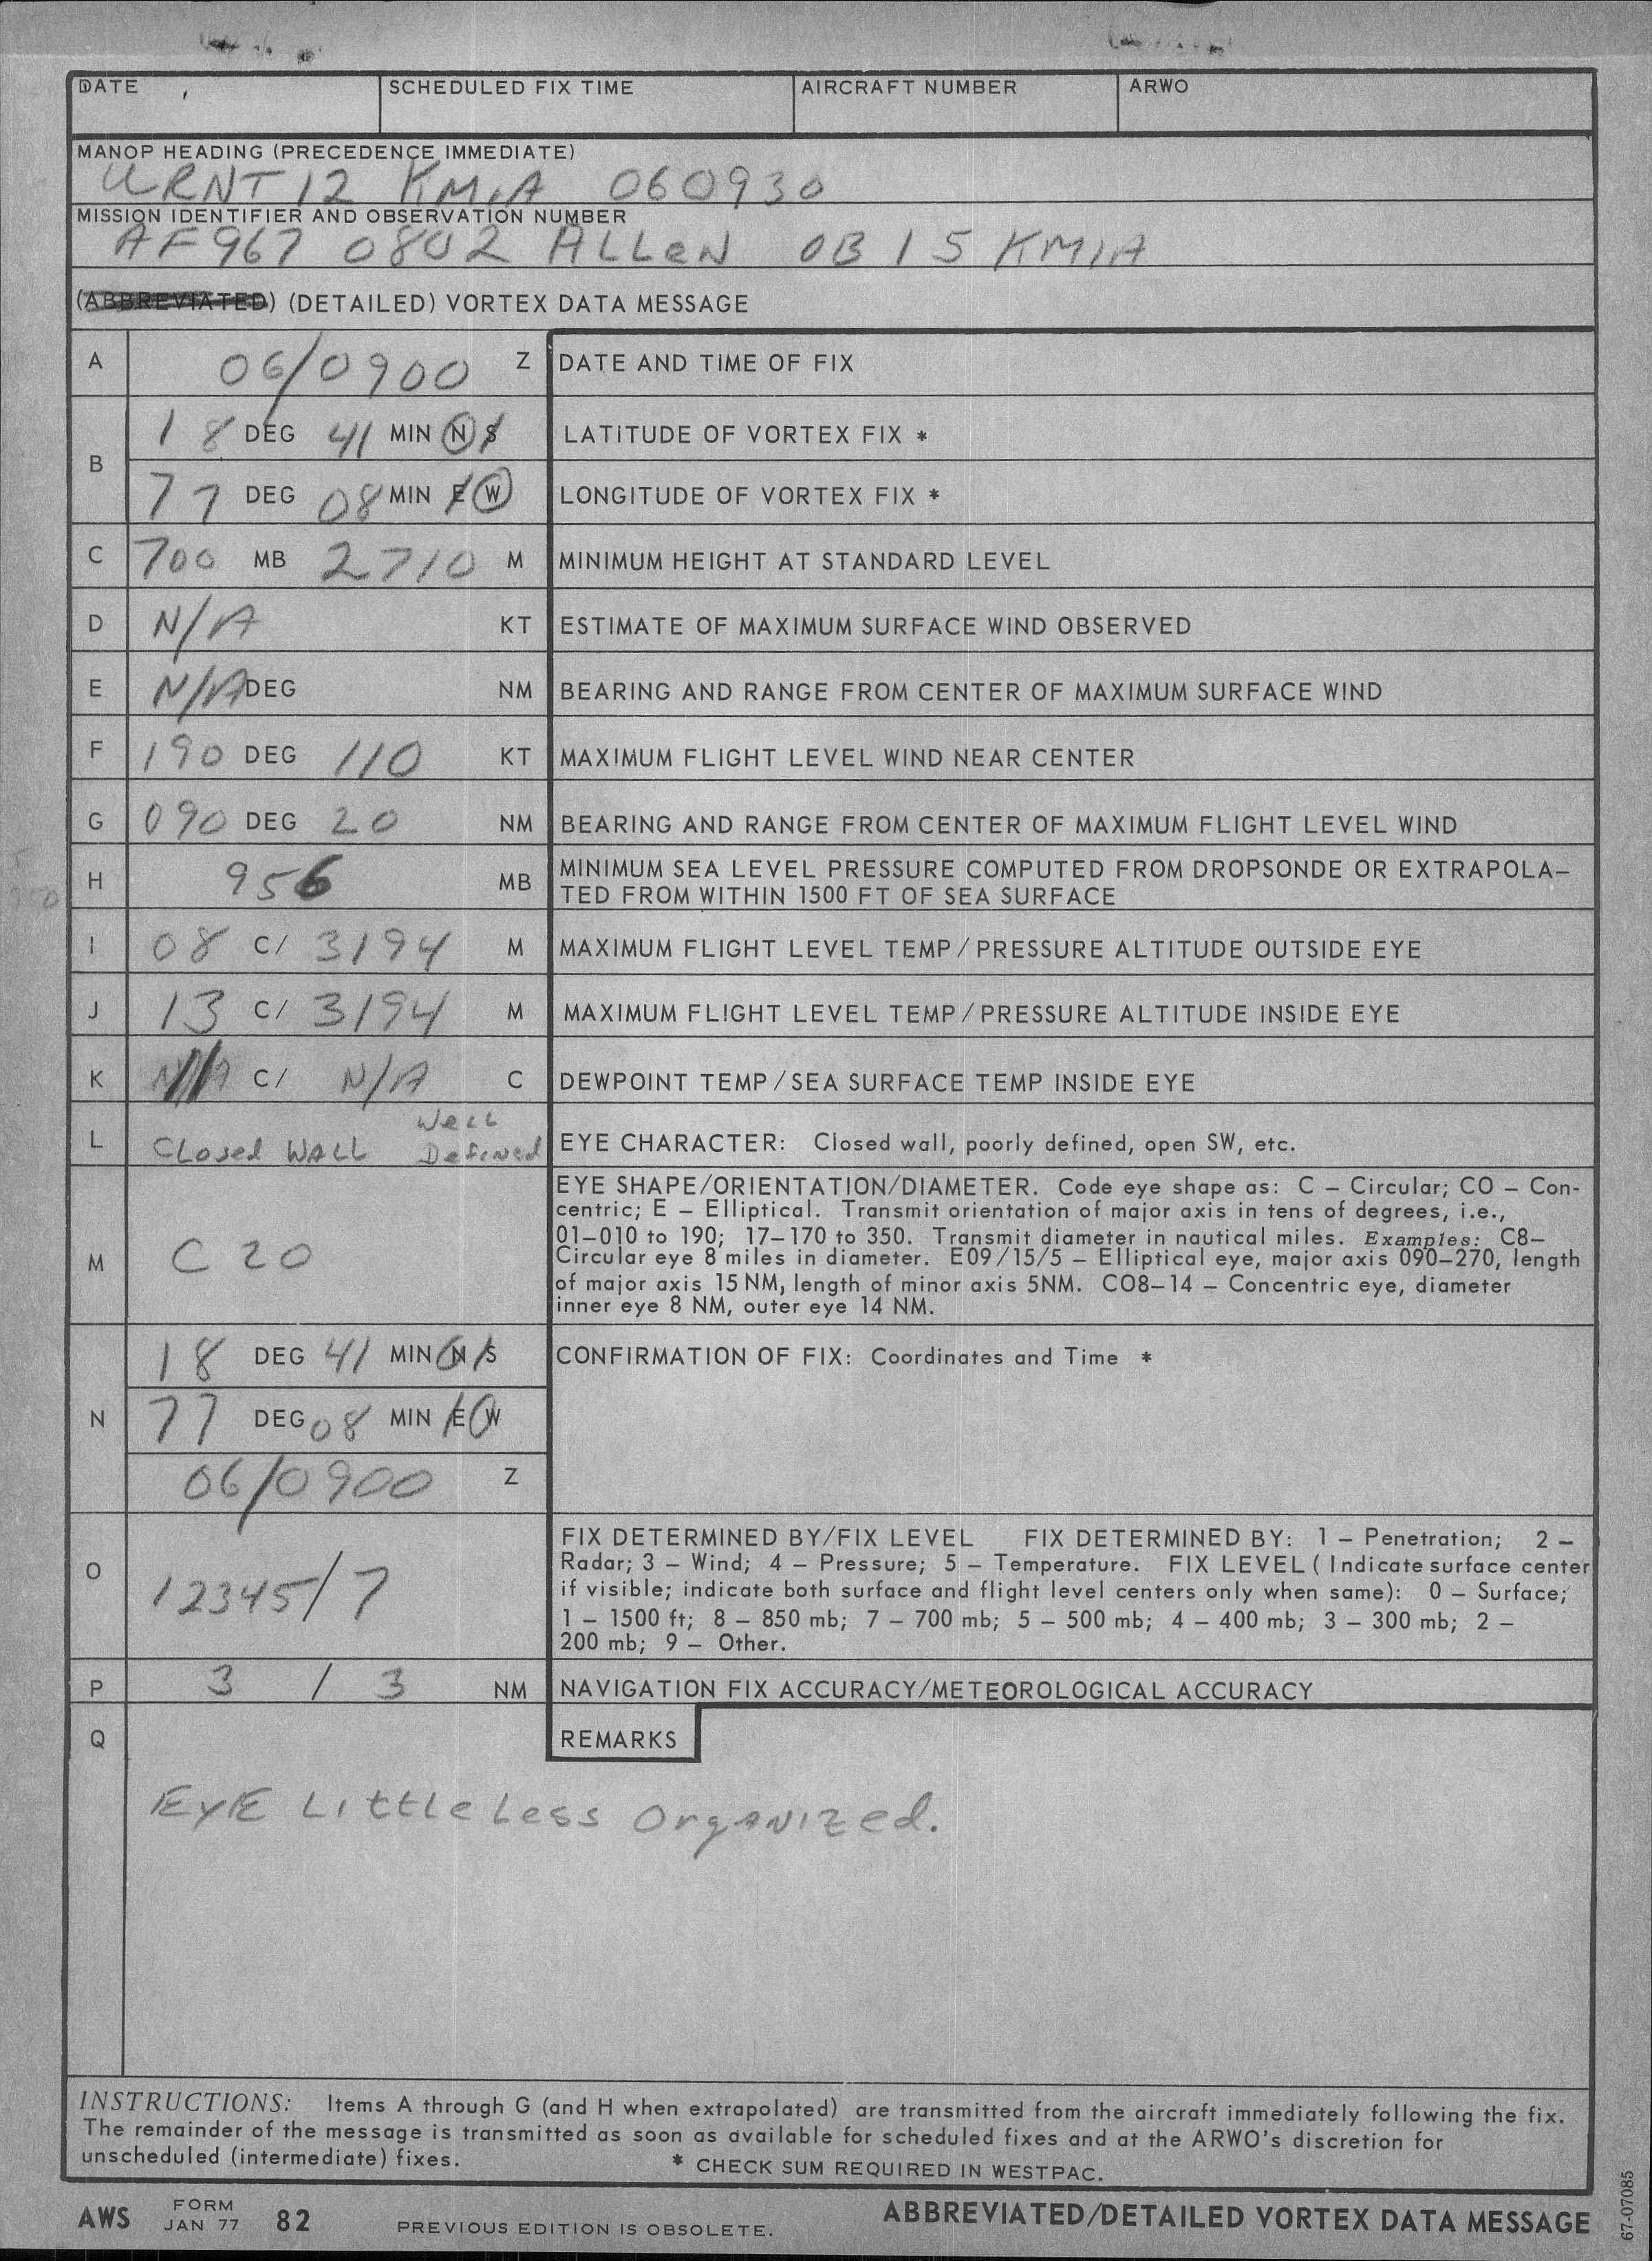 DATE SCHEDULED FIX TIME AIRCRAFT NUMBER ARWO
MANOP HEADING (PRECEDENCE IMMEDIATE)
URNT12 KMIA 060930
MISSION IDENTIFIER AND OBSERVATION NUMBER
AF967 0802 ALLeN OB 15 KMIA
(ABBREVIATED) (DETAILED) VORTEX DATA MESSAGE
A 06/0900 Z DATE AND TIME OF FIX
B 18 DEG 41 MIN N S LATITUDE OF VORTEX FIX *
77 DEG 08 MIN E W LONGITUDE OF VORTEX FIX *
C 700 MB 2710 M MINIMUM HEIGHT AT STANDARD LEVEL
D N/A KT ESTIMATE OF MAXIMUM SURFACE WIND OBSERVED
E N/A DEG NM BEARING AND RANGE FROM CENTER OF MAXIMUM SURFACE WIND
F 190 DEG 110 KT MAXIMUM FLIGHT LEVEL WIND NEAR CENTER
G 090 DEG 20 NM BEARING AND RANGE FROM CENTER OF MAXIMUM FLIGHT LEVEL WIND
H 956 MB MINIMUM SEA LEVEL PRESSURE COMPUTED FROM DROPSONDE OR EXTRAPOLA-
TED FROM WITHIN 1500 FT OF SEA SURFACE
I 08 C/ 3194 M MAXIMUM FLIGHT LEVEL TEMP/PRESSURE ALTITUDE OUTSIDE EYE
J 13 C/ 3194 M MAXIMUM FLIGHT LEVEL TEMP/PRESSURE ALTITUDE INSIDE EYE
K N/A C/ N/A C DEWPOINT TEMP/SEA SURFACE TEMP INSIDE EYE
L CLosed WALL WeLL Defined EYE CHARACTER: Closed wall, poorly defined, open SW, etc.
M C 20 EYE SHAPE/ORIENTATION/DIAMETER. Code eye shape as: C – Circular; CO – Con-
centric; E – Elliptical. Transmit orientation of major axis in tens of degrees, i.e.,
01–010 to 190; 17–170 to 350. Transmit diameter in nautical miles. Examples: C8–
Circular eye 8 miles in diameter. E09/15/5 – Elliptical eye, major axis 090–270, length
of major axis 15 NM, length of minor axis 5NM. CO8–14 – Concentric eye, diameter
inner eye 8 NM, outer eye 14 NM.
N 18 DEG 41 MIN N/S CONFIRMATION OF FIX: Coordinates and Time *
77 DEG 08 MIN E W
06/0900 Z
O 12345/7 FIX DETERMINED BY/FIX LEVEL FIX DETERMINED BY: 1 – Penetration; 2 –
Radar; 3 – Wind; 4 – Pressure; 5 – Temperature. FIX LEVEL (Indicate surface center
if visible; indicate both surface and flight level centers only when same): 0 – Surface;
1 – 1500 ft; 8 – 850 mb; 7 – 700 mb; 5 – 500 mb; 4 – 400 mb; 3 – 300 mb; 2 –
200 mb; 9 – Other.
P 3 / 3 NM NAVIGATION FIX ACCURACY/METEOROLOGICAL ACCURACY
Q REMARKS
EYE LittLe Less OrgANIZed.
INSTRUCTIONS: Items A through G (and H when extrapolated) are transmitted from the aircraft immediately following the fix.
The remainder of the message is transmitted as soon as available for scheduled fixes and at the ARWO's discretion for
unscheduled (intermediate) fixes. * CHECK SUM REQUIRED IN WESTPAC.
AWS FORM JAN 77 82 PREVIOUS EDITION IS OBSOLETE. ABBREVIATED/DETAILED VORTEX DATA MESSAGE
67-07085